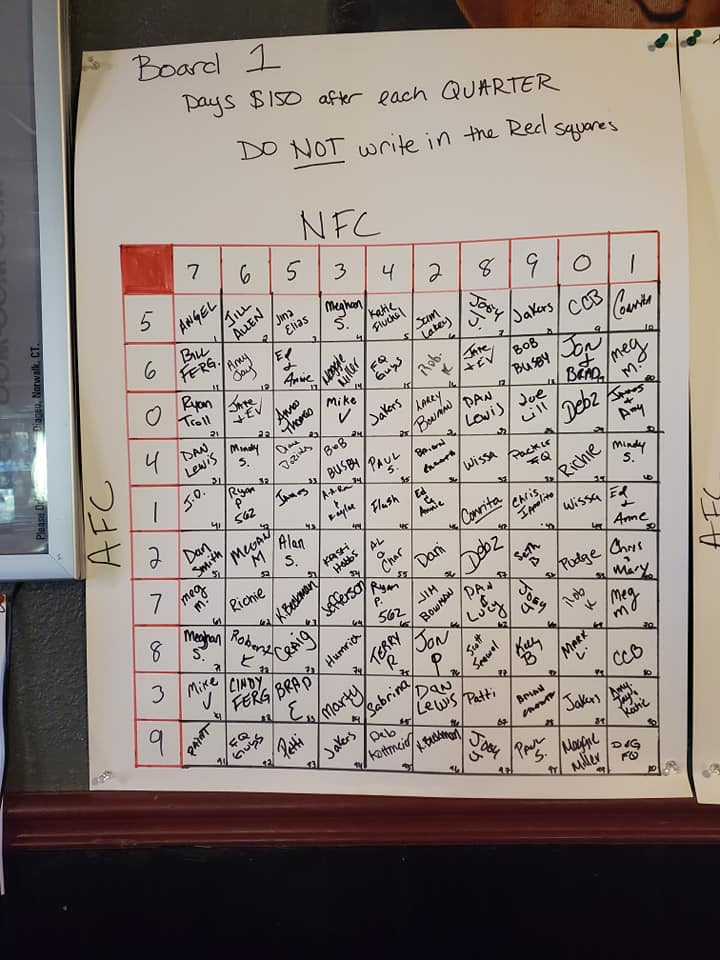 Board 1
Pays $150 after each QUARTER
DO NOT write in the Red squares
NFC
7 6 5 3 4 2 8 9 0 1
AFC
5 ANGEL JILL ALLEN Jina Elias Meghan S. Katie Sam Lakey Joey J. Jakers CCB Conrita
6 BILL FERG. Amy Jay Ed & Annie Maggie Miller EQ Guys Rob K Jate + EV BOB BUSBY JON & BRAD meg m.
0 Ryan Troll Jate + EV Anno Thomeo Mike V Jakers LARRY BOWMAN DAN LEWIS Joe Lill Debz James & Amy
4 DAN LEWIS Mindy S. Dan BOB BUSBY PAUL S. BRIAN Wissa EQ Richie Mindy S.
1 J.O. Ryan P 562 James Kaylee Flash Ed & Annie Conrita Chris Ippolito Wissa Ed & Anne
2 Dan Smith MEGAN M Alan S. Kristi Hobbs AL & Char Dani Debz Seth B Pudge Chris & Mary
7 meg m. Richie K. Beekman Jefferson Ryan P. 562 JIM BOWMAN DAN & LUCY JOEY Rob K Meg M
8 Meghan S. Robert K CRAIG Humria TERRY R JON P Scott Kelly B MARK L. CCB
3 Mike V CINDY FERG BRAD E Marty Sabrina DAN LEWIS Patti BRIAN Jakers Amy, Jay & Katie
9 PAINT EQ Guys Patti Jakers Deb Kottmeier K. Beekman Joey J PAUL S. Maggie Miller EQ
Norwalk, CT.
Please D
AF